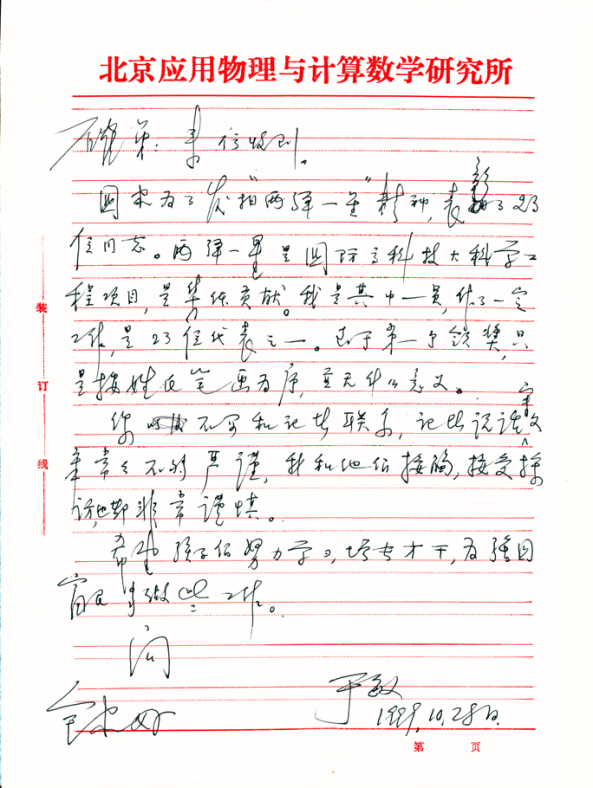 北京应用物理与计算数学研究所
来信收到。
国家为了发扬“两弹一星”精神，表彰了23
位同志。两弹一星是国际高科技大科学工
程项目，是集体贡献。我是其中一员，作了一定
工作，是23位代表之一。至于第一个领奖，只
是按姓氏笔画为序，并无什么意义。
你不要和记者联系，记者说话写文
章常常不够严谨，我和他们接触，接受採
访也都非常谨慎。
希望孩子们努力学习，增长才干，为强国
富民多做些工作。
问
全家好
于敏
1999.10.28日.
装
订
线
第 页